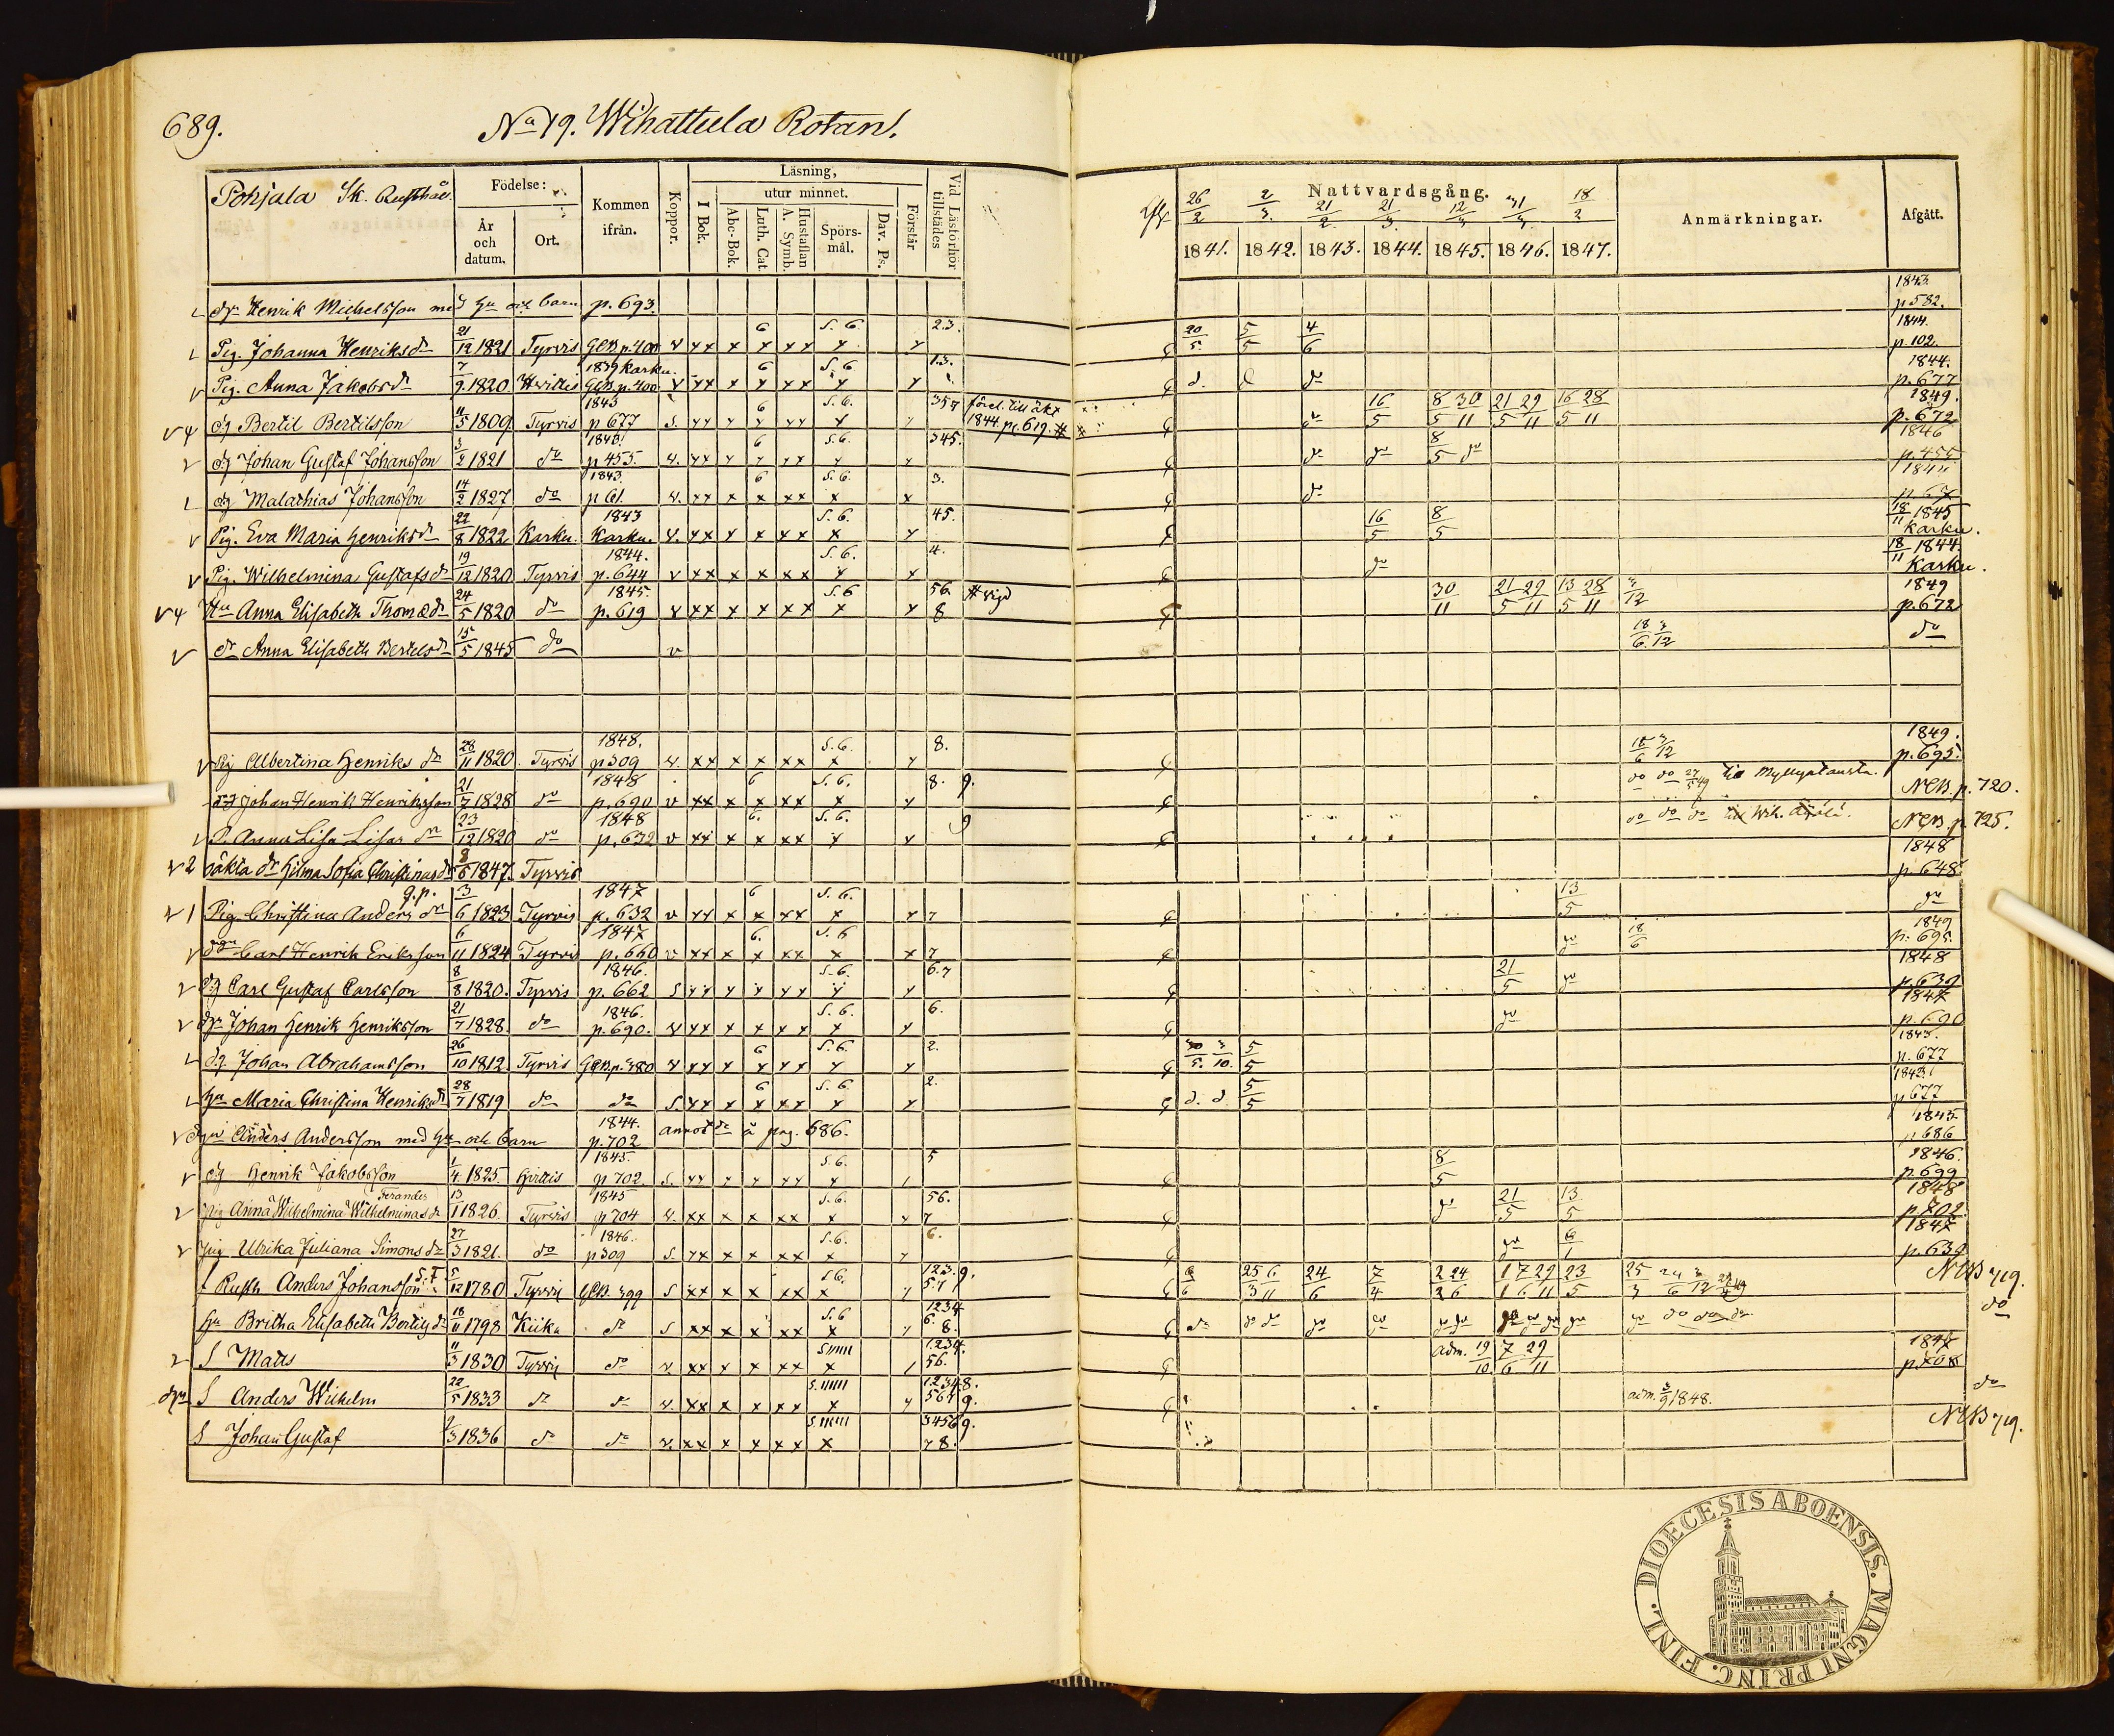 689. No 19. Wihattula Rotan.
Pohjala Sk. Rusthåll.
Födelse:
År och datum.
Ort.
Kommen ifrån.
Koppor.
Läsning,
I Bok.
utur minnet.
Abc-Bok.
Luth. Cat.
Hustaflan A. Symb.
Spörs-mål.
Dav. Ps.
Förstår
Vid Läsförhör tillstädes
Nattvardsgång.
26/2 2/3. 21/2 21/3. 12/3 31/3. 18/2
1841. 1842. 1843. 1844. 1845. 1846. 1847.
Anmärkningar.
Afgått.
Henrik Michelsson med hu och barn p. 693. 1843. p 582.
Pig. Johanna Henriksdr 21/12 1821 Tyrvis GCB. p. 400 v xx x x xx x x 6 S. 6. 2.3. 20/5. 5/5 4/6 1844. p. 102.
Pig. Anna Jakobsdr 7/9. 1820 Hvittis 1839 Karku. GCB. p. 400. v xx x x xx x x 6 S. 6. 1.3. do 1844. p. 677
dg Bertil Bertilsson 11/5 1809 Tyrvis 1843 p 677 S. 6 S. 6. 1844. p. 619. 16/5 8/5 30/11 21/5 29/11 16/5 28/11 1849. p. 672
dg Johan Gustaf Johansson 3/2 1821 do p 455. v. xx 6 S. 6. 345. do do 8/5 do 1846 p. 455
dg Malachias Johansson 14/2 1827 do 1843. p 61. v. xx x x xx x x 6 S. 6. 3. do
Pig. Eva Maria Henriksdr 22/8 1822 Karku. 1843 Karku. v. S. 6. 45. 16/5 8/5 18/11 1845 Karku.
Pig. Wilhelmina Gustafsdr 19/12 1820 Tyrvis 1844. p. 644 v xx x x xx x x S. 6. 4. do 18/11 1844. Karku.
Hu Anna Elisabeth Thomædr 24/5 1820 do 1845. p. 619 v xx x x xx x x S. 6 56. 8 vigd 30/11 21/5 29/11 13/5 28/11 3/12 1849 p. 672
dr Anna Elisabeth Bertelsdr 15/5 1845 do v 18/6 3/12 do
Pig Albertina Henriksdr 28/11 1820. Tyrvis 1848. p 309 v. xx x x xx x S. 6. 8. 18/6 3/12 1849. p. 695.
dg Johan Henrik Henriksson 21/7 1828 do 1848 p. 690 v xx x x xx x x 6 S. 6. 8. 9. do do 27/5 49 till Myllystausta. NCB. p. 720.
P. Anna Lisa Lisas dr 23/12 1820 do 1848 p. 632 v xx x x xx x x 6. S. 6. 9 do do do NCB. p. 725.
oäkta dr Hilma Sofia Christinasdr 8/6 1847. Tyrvis 1848 p. 648
Pig. Christina Andersdr 3/6 1823 Tyrvis 1847 p. 632 v xx x x xx x x 7 6 S. 6. 13/5 do
Carl Henrik Eriksson 6/11 1824 Tyrvis 1847 p. 660 v xx x x xx x x 7 6. S. 6 do 18/6 1849 p. 695.
dg Carl Gustaf Carlsson 8/8 1820. Tyrvis 1846. p. 662 S xx S. 6. 6.7 21/5 do 1848 p. 639
Johan Henrik Henriksson 21/7 1828. do 1846. p. 690. v xx x x xx x x S. 6. 6. do 1847 p. 690
dg Johan Abrahamsson 26/10 1812. Tyrvis GCB. p. 380 v xx 6 S. 6. 2. 5/5 1843. p. 677
hu Maria Christina Henriksdr 28/7 1819 do do S. xx 6 S. 6. 2. 5/5 1843. p 677
Anders Andersson med hu och barn 1844. p. 702 annot de å pag. 686. 1845 p 686
dg Henrik Jakobsson 1/4. 1825. Hvittis 1845. p 702. S. xx S. 6. 5 8/5 1846. p. 699
Pig Anna Wilhelmina Wilhelminasdr Ferander 13/1 1826. Tyrvis 1845 p 704 v. xx x x xx x x S. 6. 56. 7 do 21/5 13/5 1848 p. 802.
Pig Ulrika Juliana Simonsdr 27/3 1821. do 1846. p 309 S. xx x x xx x S. 6. 6. do 6/1 1847 p. 639
Rusth Anders Johansson S. F. 5/12 1780 Tyrvis GCB. 399 S xx x x xx x S 6. 123. 57 9. 25/3 6/11 24/6 7/4 2/2 24/6 1/1 7/6 29/11 23/5 25/3 24/6 3/12 NCB 719.
hu Britha Elisabeth Bertilsdr 18/11 1798 Kiika do S xx x x xx x S. 6 1234 6. 8. do do do do do do do do do do do do
S Matts 11/3 1830 Tyrvis do v. xx x x xx x S 1234. 56. adm. 19/10. 7/6 29/11 1847 p. 708
S Anders Wilhelm 22/5 1833 do do v. xx x x xx x S. 12348. 567 9. adm. 3/9 1848. do
S Johan Gustaf 1836 do do v. xx x x xx x S 3456 9. 78. NCB 719.
DIOECESIS ABOENSIS. MAGNI PRINC. FINL.